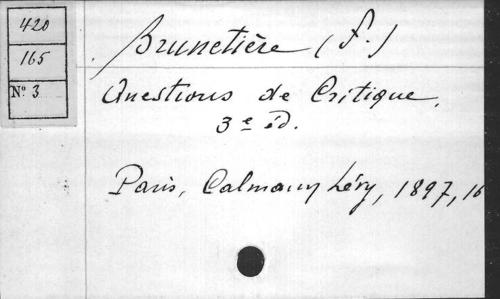 420
165
Nº 3
Brunetière (F.)
Questions de Critique.
3e éd.
Paris, Calmann Lévy, 1897, 16